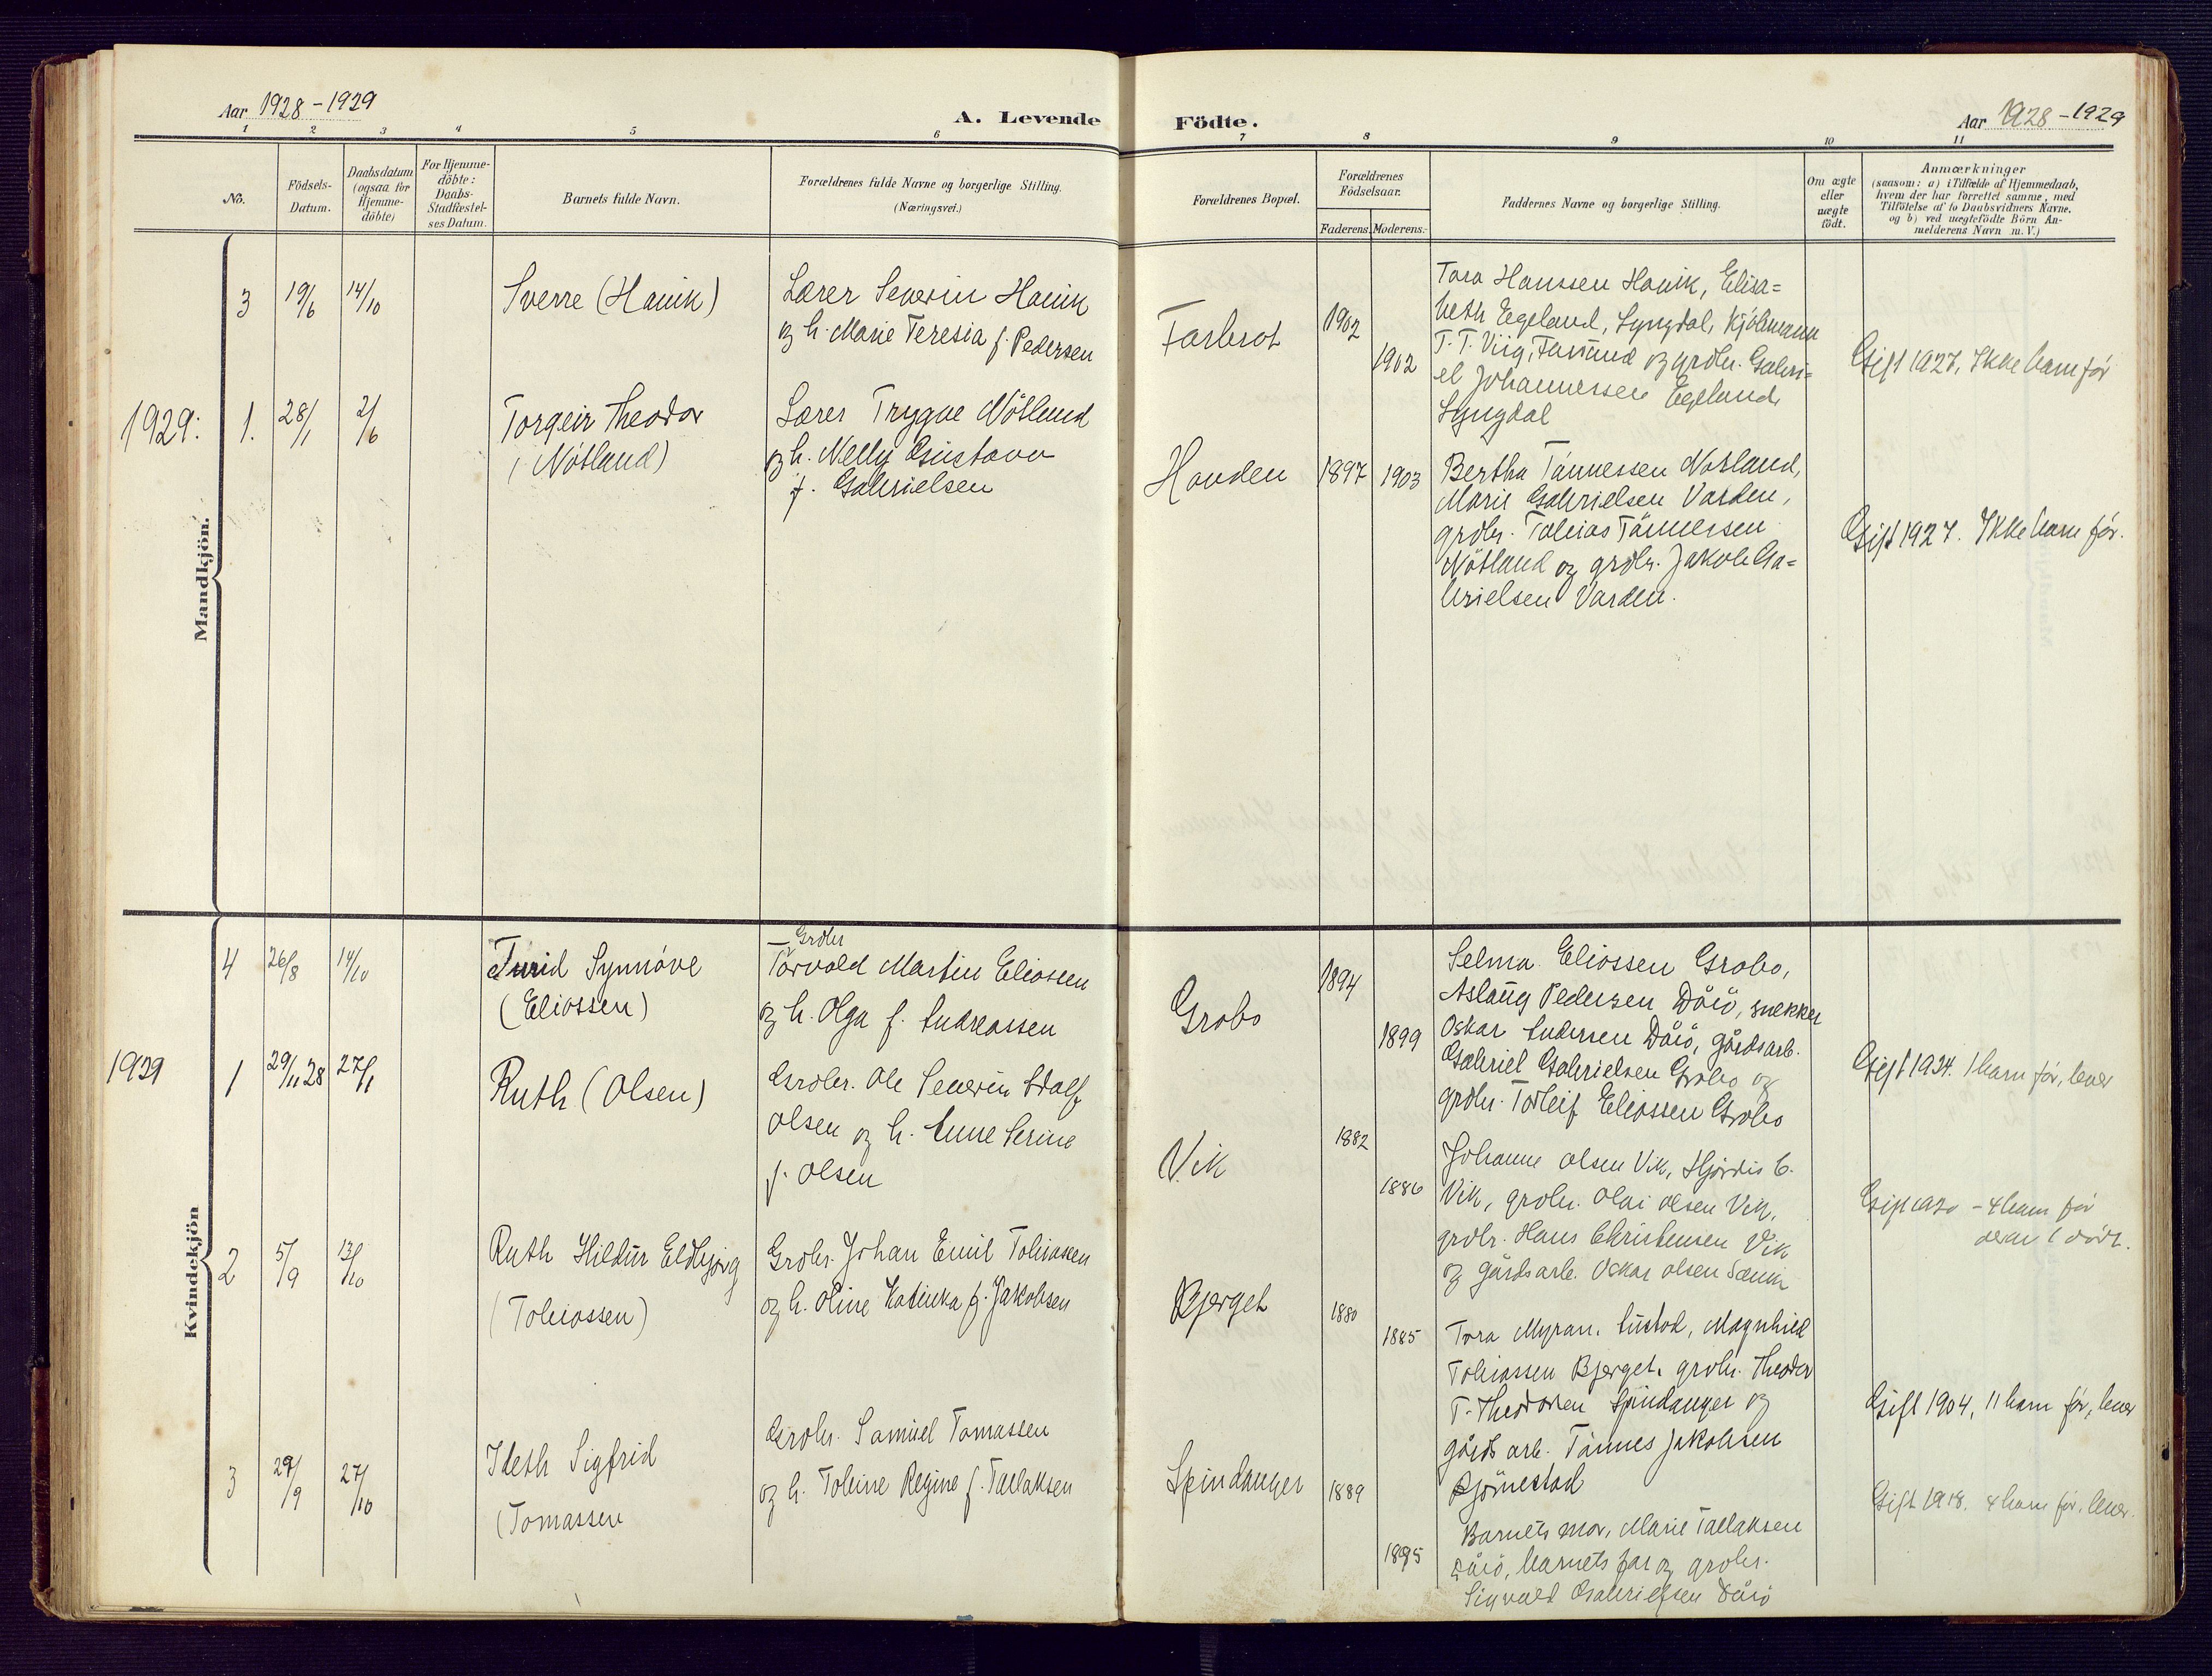 Aar 1928 - 1929
A. Levende
Födte.
Aar 1928 - 1929
1 2 3 4 5 6 7 8 9 10 11
No.
Födsels-
Datum.
Daabsdatum
(ogsaa for
Hjemme-
döbte)
For Hjemme-
döbte:
Daabs-
Stadfæstel-
ses Datum.
Barnets fulde Navn.
Forældrenes fulde Navne og borgerlige Stilling.
(Næringsvei.)
Forældrenes Bopæl.
Forældrenes
Födselsaar.
Faderens. Moderens.
Faddernes Navne og borgerlige Stilling.
Om ægte
eller
uægte
födt.
Anmærkninger
(saasom: a) i Tilfælde af Hjemmedaab,
hvem der har forrettet samme, med
Tilföielse af to Daabsvidners Navne.
og b) ved uægtefödte Börn An-
melderens Navn m. V.)
Mandkjön.
3
19/6
14/10
Sverre (Hauik)
Lærer Severin Hauik
og h. Marie Teresia f. Pedersen
Farbrot
1902
1902
Tora Hanssen Hauik, Elisa=
beth Egeland, Lyngdal, Kjöbmann
T. T. Viig, Farsund og grdbr. Gabri=
el Johannessen Egeland,
Lyngdal
Gift 1927, Ikke barn för
1929:
1.
28/1
2/6
Torgeir Theodor
(Nötland)
Lærer Trygve Nötland
og h. Nelly Gustava
f. Gabrielsen
Hauden
1897
1903
Bertha Tönnessen Nötland,
Marie Gabrielsen Varden,
grdbr. Tobias Tönnessen
Nötland og grdbr. Jakob Ga=
brielsen Varden.
Gift 1927. Ikke barn för.
Kvindekjön
4
26/8
14/10
Turid Synnöve
(Eliassen)
Grdbr
Torvald Martin Eliassen
og h. Olga f. Andreassen
Grobo
1894
1899
Selma Eliassen Grobo,
Aslaug Pedersen Dåsö, snekker
Oskar Andersen Dåsö, gårdsarb.
Gabriel Gabrielsen Grobo og
grdbr. Torleif Eliassen Grobo
Gift 1924. 1 barn för, lever
1929
1
29/11 28
27/1
Ruth (Olsen)
Grdbr. Ole Severin Adolf
Olsen og h. Anne Serine
f. Olsen
Vik
1882
1886
Johanne Olsen Vik, Hjördis C.
Vik, grdbr. Olai Olsen Vik,
grdbr. Hans Christensen Vik
og gårdsarb. Oskar Olsen
Gift 1920 - 4 barn för
derav 1 död.
2
5/9
13/10
Ruth Hildur Eldbjörg
(Tobiassen)
Grdbr. Johan Emil Tobiassen
og h. Oline Katinka f. Jakobsen
Bjerget
1880
1885
Tora Myran, Austad, Magnhild
Tobiassen Bjerget, grdbr. Theodor
T. Theodorsen Spindanger og
gårdsarb. Tönnes Jakobsen
Björnestad
Gift 1904, 11 barn för, lever
3
29/9
27/10
Ideth Sigfrid
(Tomassen
Grdbr. Samuel Tomassen
og h. Tobine Regine f. Tallaksen
Spindanger
1889
1895
Barnets mor, Marie Tallaksen
Dåsö, barnets far og grdbr.
Sigvald Gabrielsen Dåsö
Gift 1918. 4 barn för, lever.